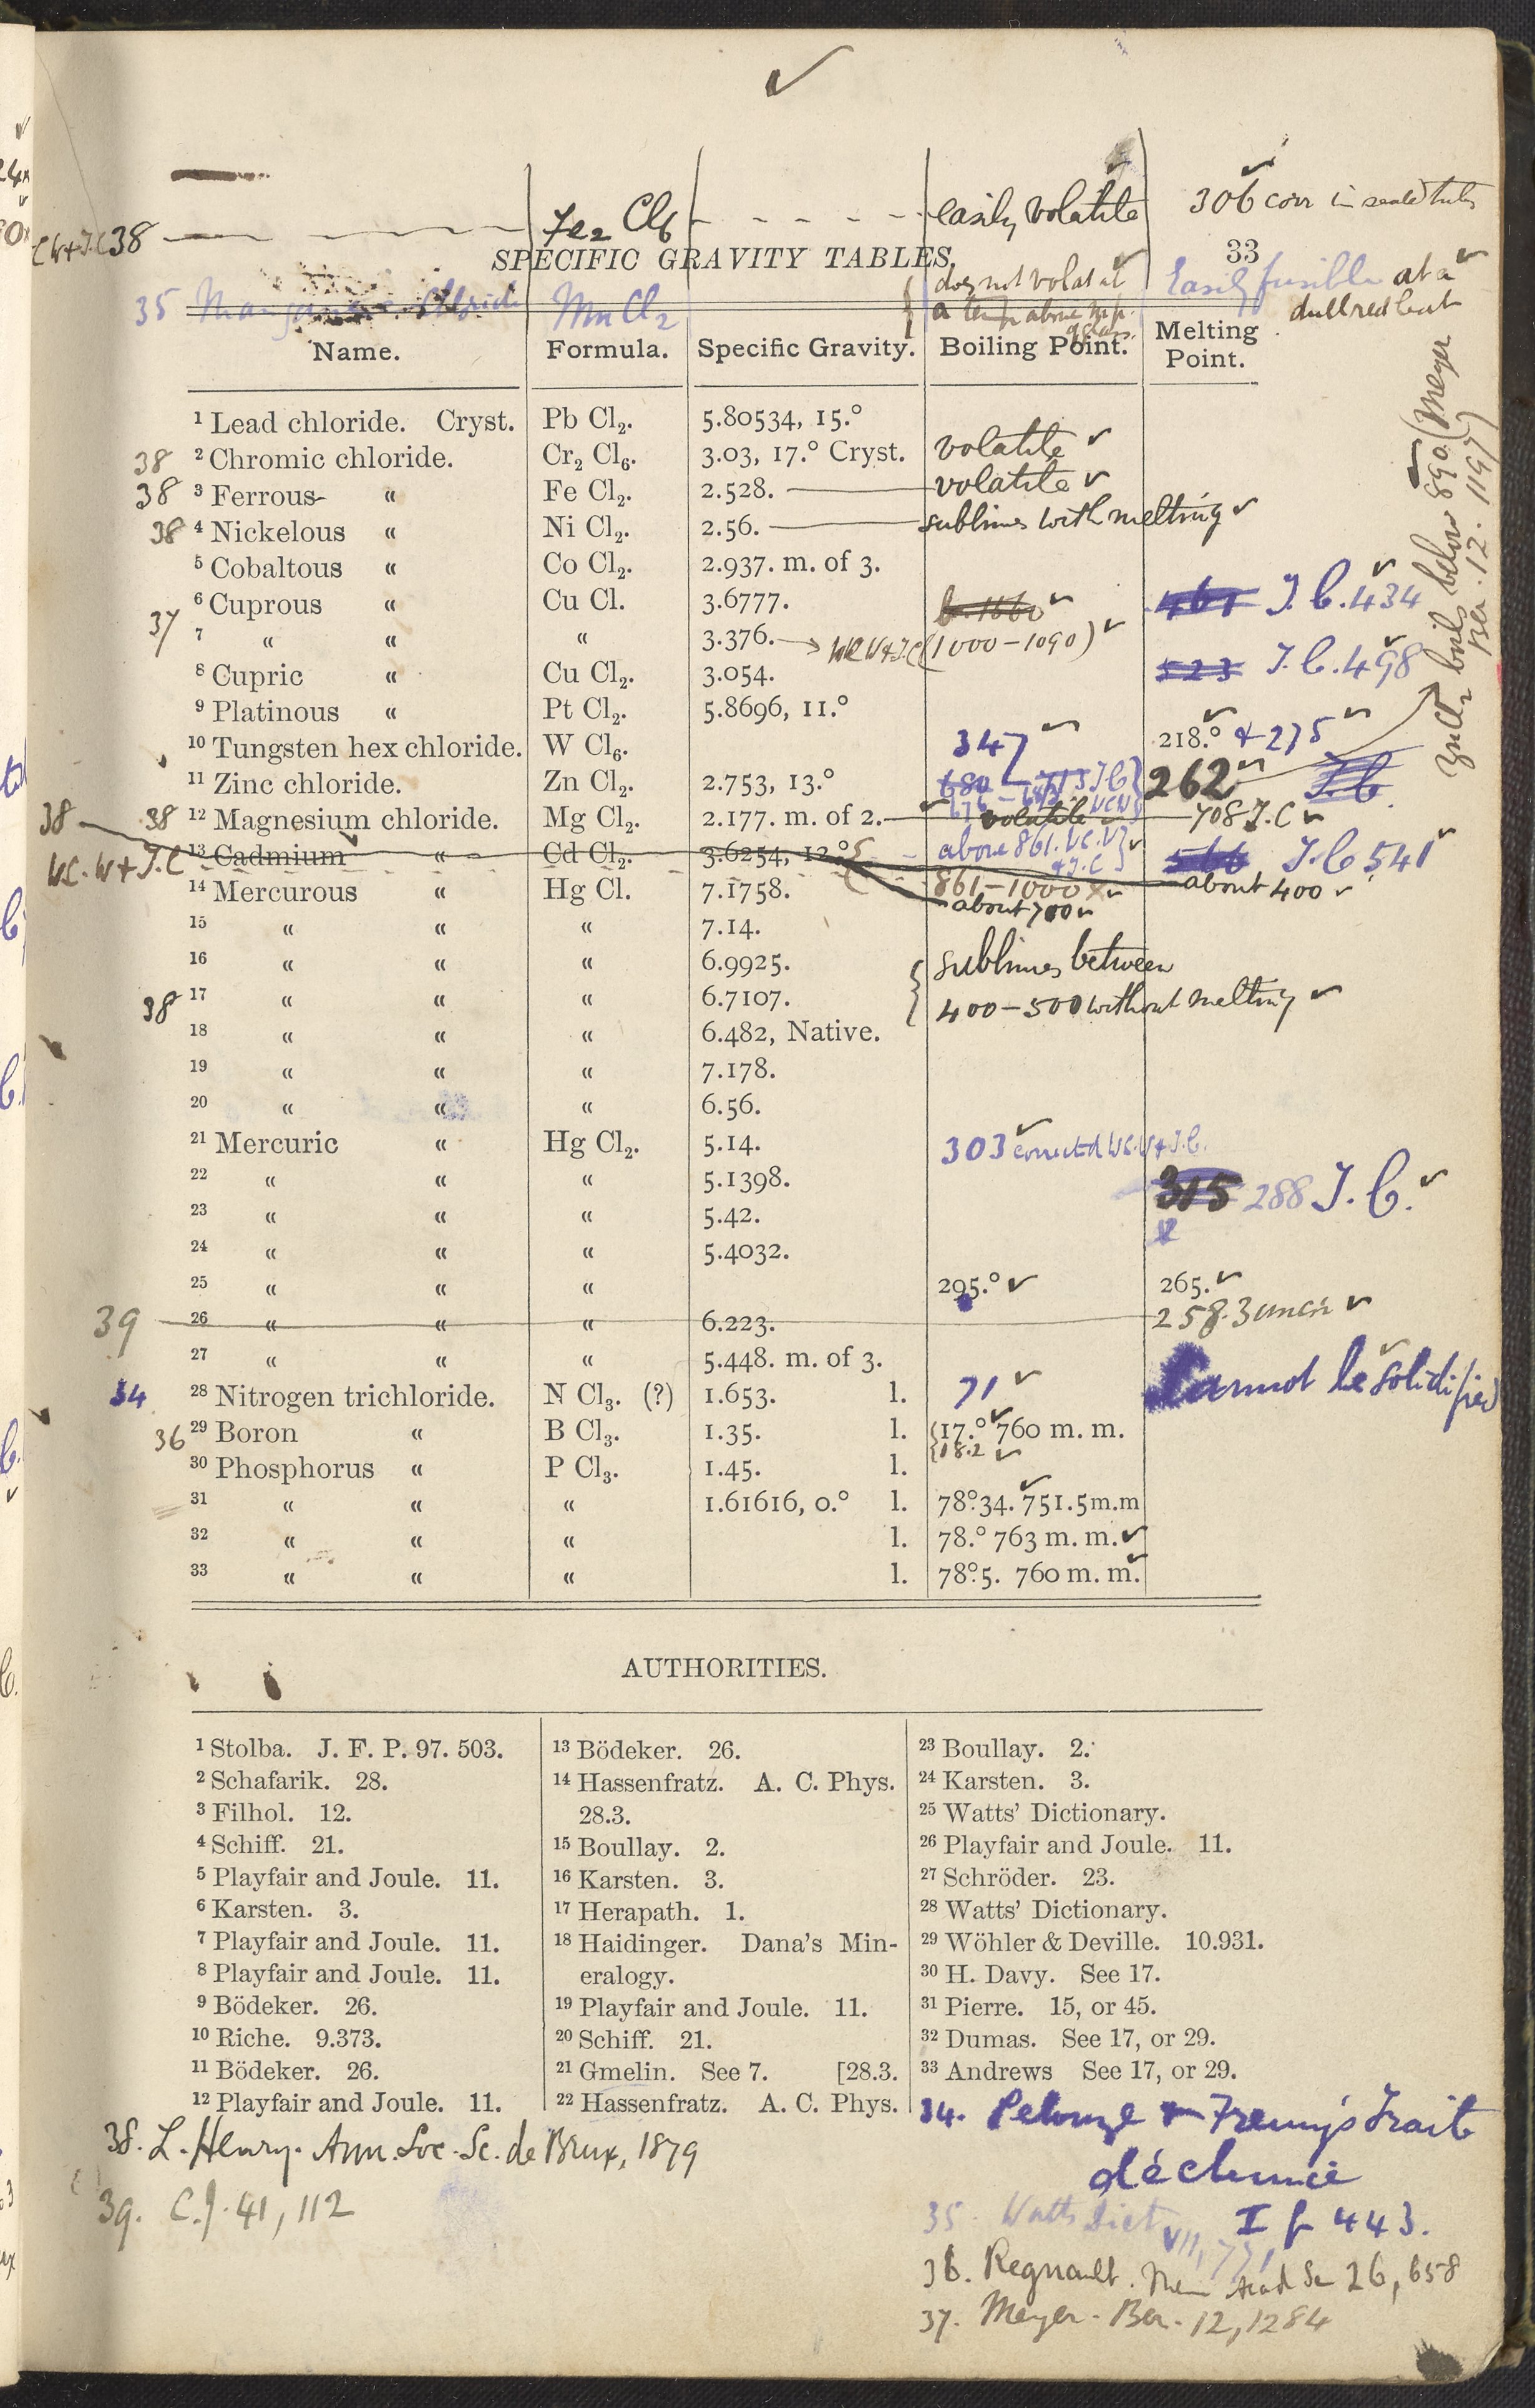 C.W+J.C 38 Fe₂ Cl₆ - - - - - easily volatile 306 corr in sealed tubes
SPECIFIC GRAVITY TABLES. 33
35 Manganese Chloride Mn Cl₂ { does not volat at Easily fusible at a
a temp above m.p. dull red heat
of glass.
Name. Formula. Specific Gravity. Boiling Point. Melting Point.
¹ Lead chloride. Cryst. Pb Cl₂. 5.80534, 15.°
38 ² Chromic chloride. Cr₂ Cl₆. 3.03, 17.° Cryst. volatile ✓
38 ³ Ferrous- “ Fe Cl₂. 2.528. volatile ✓
38 ⁴ Nickelous “ Ni Cl₂. 2.56. sublimes with melting ✓
⁵ Cobaltous “ Co Cl₂. 2.937. m. of 3.
⁶ Cuprous “ Cu Cl. 3.6777. b. 1660 ✓ 461 J.C. 434
37 ⁷ “ “ “ 3.376. → WCW+J.C (1000–1090) ✓
⁸ Cupric “ Cu Cl₂. 3.054. 523 J.C. 498
⁹ Platinous “ Pt Cl₂. 5.8696, 11.°
¹⁰ Tungsten hex chloride. W Cl₆. 347 ✓ 218.° & 275 ✓
¹¹ Zinc chloride. Zn Cl₂. 2.753, 13.° 680 – 713 J.C } 262 J.C
676 – 683 W.C.W
ZnCl₂ boils below 890. (Meyer
Ber. 12. 1197)
38 38 ¹² Magnesium chloride. Mg Cl₂. 2.177. m. of 2. volatile ✓ 708 J.C ✓
W.C.W+J.C ¹³ Cadmium “ Cd Cl₂. 3.6254, 12.° above 861. W.C.W + J.C } ✓ 566 J.C 541
861–1000 ✓ about 400 ✓
¹⁴ Mercurous “ Hg Cl. 7.1758. about 700 ✓
¹⁵ “ “ “ 7.14.
¹⁶ “ “ “ 6.9925. { sublimes between
38 ¹⁷ “ “ “ 6.7107. 400–500 without melting ✓
¹⁸ “ “ “ 6.482, Native.
¹⁹ “ “ “ 7.178.
²⁰ “ “ “ 6.56.
²¹ Mercuric “ Hg Cl₂. 5.14. 303 corrected W.C.W+J.C.
²² “ “ “ 5.1398. 315 288 J.C. ✓
²³ “ “ “ 5.42.
²⁴ “ “ “ 5.4032.
²⁵ “ “ “ 295.° ✓ 265. ✓
39 ²⁶ “ “ “ 6.223. 258.3 uncor ✓
²⁷ “ “ “ 5.448. m. of 3.
34 ²⁸ Nitrogen trichloride. N Cl₃. (?) 1.653. l. 71 ✓ Cannot be solidified
36 ²⁹ Boron “ B Cl₃. 1.35. l. {17.° 760 m. m.
{18.2 ✓
³⁰ Phosphorus “ P Cl₃. 1.45. l.
³¹ “ “ “ 1.61616, 0.° l. 78°.34. 751.5 m.m
³² “ “ “ l. 78.° 763 m. m. ✓
³³ “ “ “ l. 78°.5. 760 m. m. ✓
AUTHORITIES.
¹ Stolba. J. F. P. 97. 503.
² Schafarik. 28.
³ Filhol. 12.
⁴ Schiff. 21.
⁵ Playfair and Joule. 11.
⁶ Karsten. 3.
⁷ Playfair and Joule. 11.
⁸ Playfair and Joule. 11.
⁹ Bödeker. 26.
¹⁰ Riche. 9.373.
¹¹ Bödeker. 26.
¹² Playfair and Joule. 11.
¹³ Bödeker. 26.
¹⁴ Hassenfratz. A. C. Phys.
28.3.
¹⁵ Boullay. 2.
¹⁶ Karsten. 3.
¹⁷ Herapath. 1.
¹⁸ Haidinger. Dana's Min-
eralogy.
¹⁹ Playfair and Joule. 11.
²⁰ Schiff. 21.
²¹ Gmelin. See 7. [28.3.
²² Hassenfratz. A. C. Phys.
²³ Boullay. 2.
²⁴ Karsten. 3.
²⁵ Watts' Dictionary.
²⁶ Playfair and Joule. 11.
²⁷ Schröder. 23.
²⁸ Watts' Dictionary.
²⁹ Wöhler & Deville. 10.931.
³⁰ H. Davy. See 17.
³¹ Pierre. 15, or 45.
³² Dumas. See 17, or 29.
³³ Andrews See 17, or 29.
34. Pelouze & Fremy's Traite
de chimie
I p 443.
35. Watts Dict VII, 771
36. Regnault. Mem Acad Sc 26, 658
37. Meyer. Ber. 12, 1284
38. L. Henry. Ann. Soc. Sc. de Brux, 1879
39. C.J. 41, 112